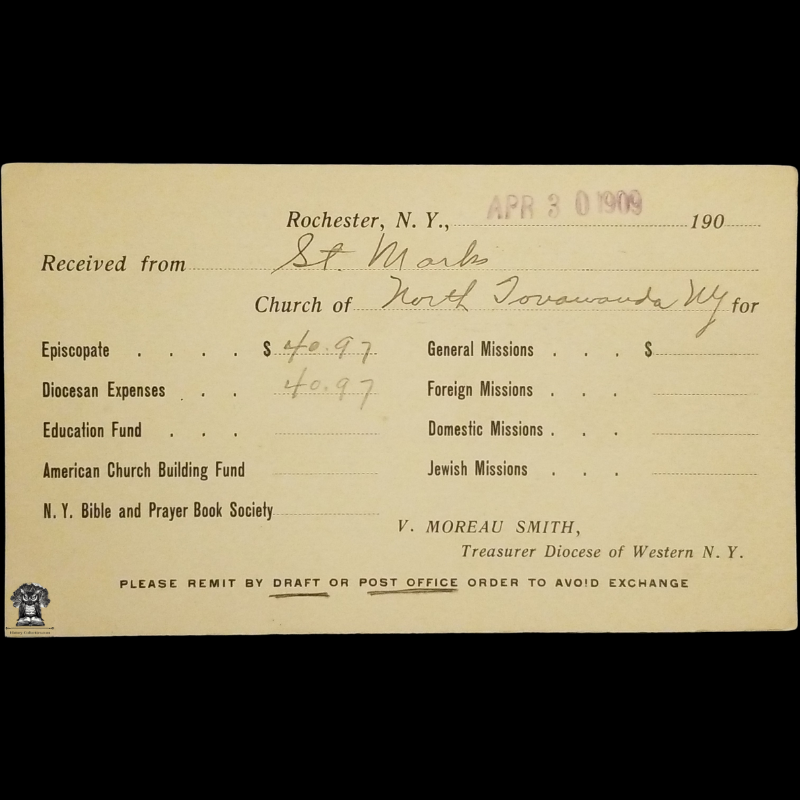 Rochester, N. Y., APR 30 1909 190
Received from St. Marks
Church of North Tonawanda NY for
Episcopate . . . . $ 40.97
Diocesan Expenses . . 40.97
Education Fund . . .
American Church Building Fund
N. Y. Bible and Prayer Book Society
General Missions . . . $
Foreign Missions . . .
Domestic Missions . . .
Jewish Missions . . .
V. MOREAU SMITH,
Treasurer Diocese of Western N. Y.
PLEASE REMIT BY DRAFT OR POST OFFICE ORDER TO AVOID EXCHANGE